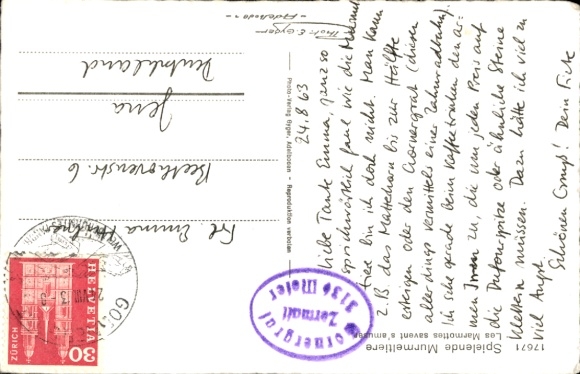 24.8.63
Liebe Tante Emma, ganz so
sprichwörtlich faul wie die Murmel-
tiere bin ich doch nicht. Man kann
z.B. das Matterhorn bis zur Hälfte
ersteigen oder den Gornergrat (diesen
allerdings vermittels einer Zahnradbahn).
Ich sehe gerade beim Kaffeetrinken den ar-
men Irren zu, die um jeden Preis auf
die Dufourspitze oder ähnliche Steine
klettern müssen. Dazu hätte ich viel zu
viel Angst.
Schönen Gruß! Dein
17671
Spielende Murmeltiere
Les Marmottes savent s'amuser
Gornergrat
3136 Meter
Zermatt
Photo-Verlag Gyger, Adelboden - Reproduktion verboten
Frl. Emma
Beethovenstr. 6
Jena
Deutschland
HELVETIA
ZÜRICH
30